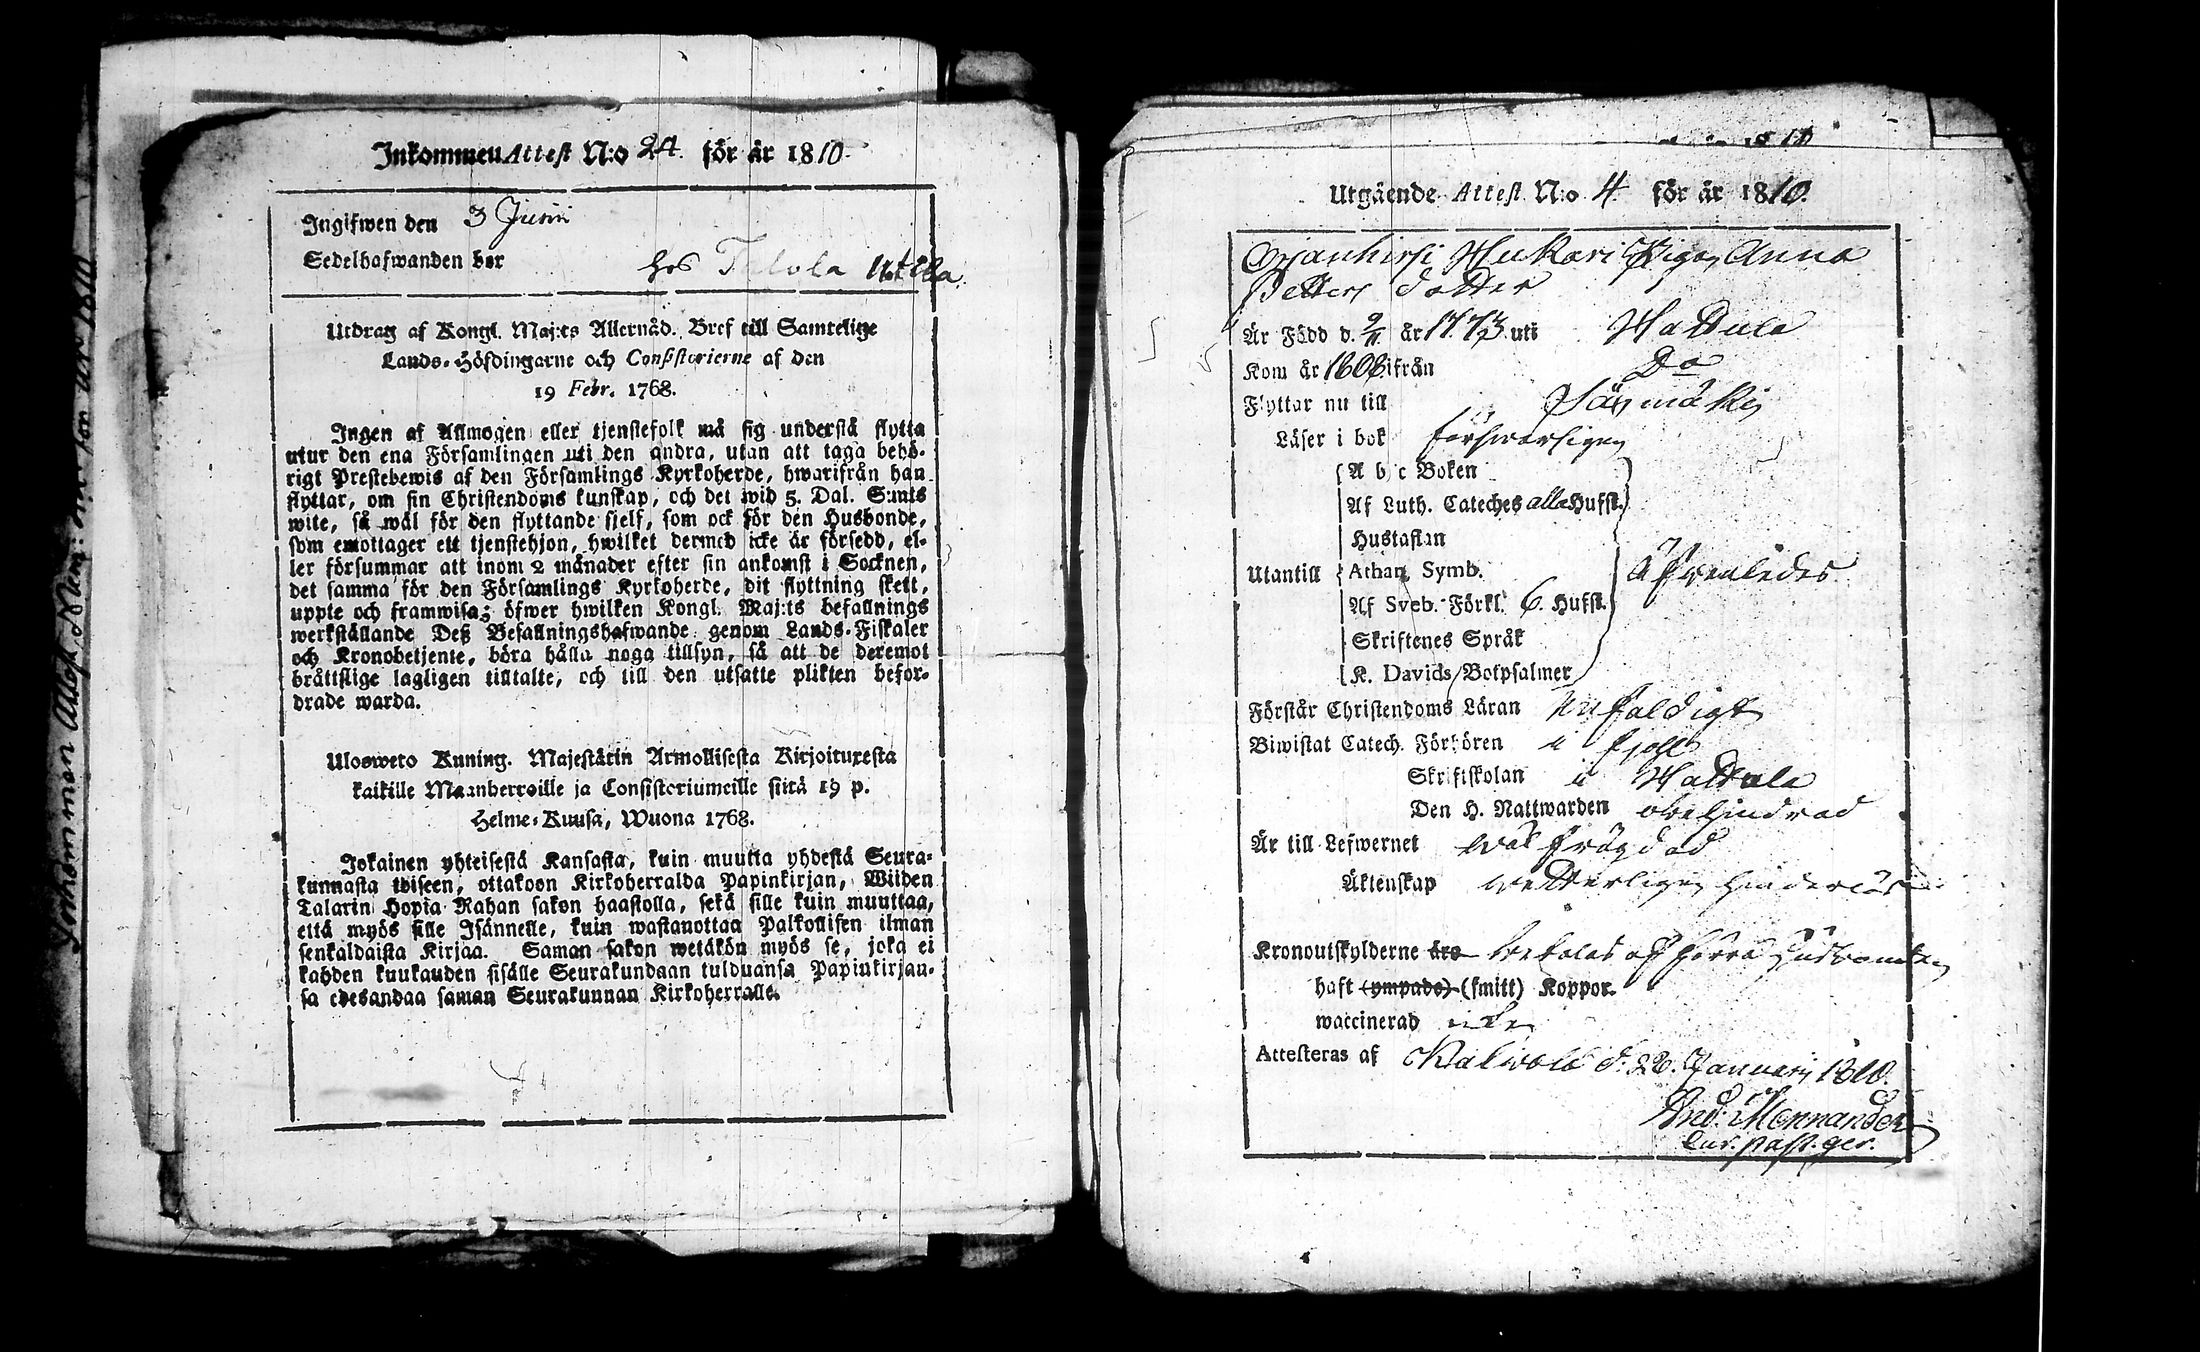 Inkommen Attest N:o 24. för år 1810.
Ingifwen den 3 Junii
Sedelhafwanden bor hos Talola Uotila
Utdrag af Kongl. Maj:ts Allernåd. Bref till Samtelige
Lands-Höfdingarne och Consistorierne af den
19 Febr. 1768.
Ingen af Allmogen eller tjenstefolk må sig understå flytta
utur den ena Församlingen uti den andra, utan att taga behö-
rigt Prestebewis af den Församlings Kyrkoherde, hwarifrån han
flyttar, om sin Christendoms kunskap, och det wid 5. Dal. S:mts
wite, så wäl för den flyttande sjelf, som ock för den Husbonde,
som emottager ett tjenstehjon, hwilket dermed icke är försedd, el-
ler försummar att inom 2 månader efter sin ankomst i Socknen,
det samma för den Församlings Kyrkoherde, dit flyttning skett,
uppte och framwisa; öfwer hwilken Kongl. Maj:ts befallnings
werkställande Deß Befallningshafwande genom Lands-Fiskaler
och Kronobetjente, böra hålla noga tillsyn, så att de deremot
bråttslige lagligen tilltalte, och till den utsatte plikten befor-
drade warda.
Ulosweto Kuning. Majestätin Armollisesta Kirjoituxesta
kaikille Maanherroille ja Consistoriumeille siitä 19 p.
Helme-Kuusa, Wuona 1768.
Jokainen yhteisestä Kansasta, kuin muutta yhdestä Seura-
kunnasta toiseen, ottakoon Kirkoherralda Papinkirjan, Wiiden
Talarin Hopia Rahan sakon haastolla, sekä sille kuin muuttaa,
että myös sille Isännelle, kuin wastanottaa Palkollisen ilman
senkaldaista Kirjaa. Saman sakon wetäkön myös se, joka ei
kahden kuukauden sisälle Seurakundaan tulduansa Papinkirjan-
sa edesandaa saman Seurakunnan Kirkoherralle.
Utgående Attest N:o 4. för år 1810.
Orjanhirsi Mukari Pigan Anna
Petters dotter
Är Född d. 9/11 år 1773 uti Hattula
Kom år 1808 ifrån Do
Flyttar nu till Säxmäki
Läser i bok förswarligen
A b c Boken
Af Luth. Cateches alla Hufst.
Hustaflan
Utantill Athan. Symb. Äfwenledes
Af Sveb. Förkl. 6. Hufst.
Skriftenes Språk
K. Davids Botpsalmer
Förstår Christendoms Läran enfaldigt
Biwistat Catech. Förhören i fjohl
Skriftskolan i Hattula
Den H. Nattwarden obehindrad
Är till Lefwernet wäl frägdad
Äktenskap wetterligen hinderlös
Kronoutskylderne äro betalas af förra Husbonden
haft (ympade) (smitt) Koppor.
waccinerad icke
Attesteras af Kalwola d. 28. Januarii 1810.
And. Mennander
Cur. past. ger.